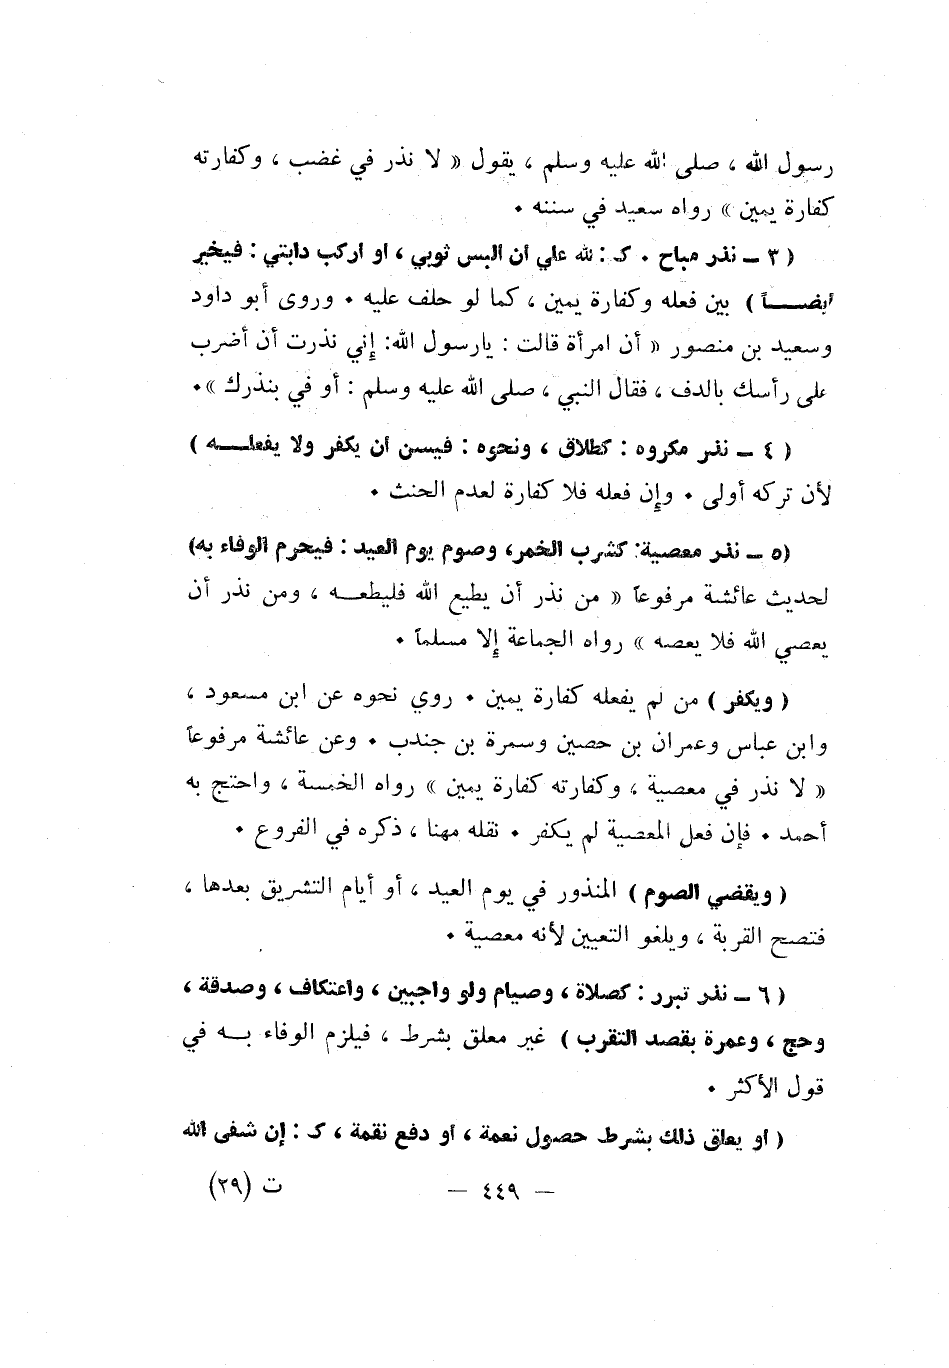 رسول الله ، صلى الله عليه وسلم ، يقول « لا نذر في غضب ، وكفارته
كفارة يمين » رواه سعيد في سننه .
( ٣ ـ نذر مباح . كـ : لله علي ان البس ثوبي ، او اركب دابتي : فيخير
أيضـــاً ) بين فعله وكفارة يمين ، كما لو حلف عليه . وروى أبو داود
وسعيد بن منصور « أن امرأة قالت : يارسول الله: إني نذرت أن أضرب
على رأسك بالدف ، فقال النبي ، صلى الله عليه وسلم : أو في بنذرك » .
( ٤ ـ نذر مكروه : كطلاق ، ونحوه : فيسن ان يكفر ولا يفعلـــه )
لأن تركه أولى . وإن فعله فلا كفارة لعدم الحنث .
(٥ ـ نذر معصية: كشرب الخمر، وصوم يوم العيد : فيحرم الوفاء به)
لحديث عائشة مرفوعاً « من نذر أن يطيع الله فليطعـــه ، ومن نذر أن
يعصي الله فلا يعصه » رواه الجماعة إلا مسلماً .
( ويكفر ) من لم يفعله كفارة يمين . روي نحوه عن ابن مسعود ،
وابن عباس وعمران بن حصين وسمرة بن جندب . وعن عائشة مرفوعاً
« لا نذر في معصية ، وكفارته كفارة يمين » رواه الخمسة ، واحتج به
أحمد . فإن فعل المعصية لم يكفر . نقله مهنا ، ذكره في الفروع .
( ويقضي الصوم ) المنذور في يوم العيد ، أو أيام التشريق بعدها ،
فتصح القربة ، ويلغو التعيين لأنه معصية .
( ٦ ـ نذر تبرر : كصلاة ، وصيام ولو واجبين ، واعتكاف ، وصدقة ،
وحج ، وعمرة بقصد التقرب ) غير معلق بشرط ، فيلزم الوفاء بـــه في
قول الأكثر .
( او يعلق ذلك بشرط حصول نعمة ، او دفع نقمة ، كـ : إن شفى الله
— ٤٤٩ — ت (٢٩)